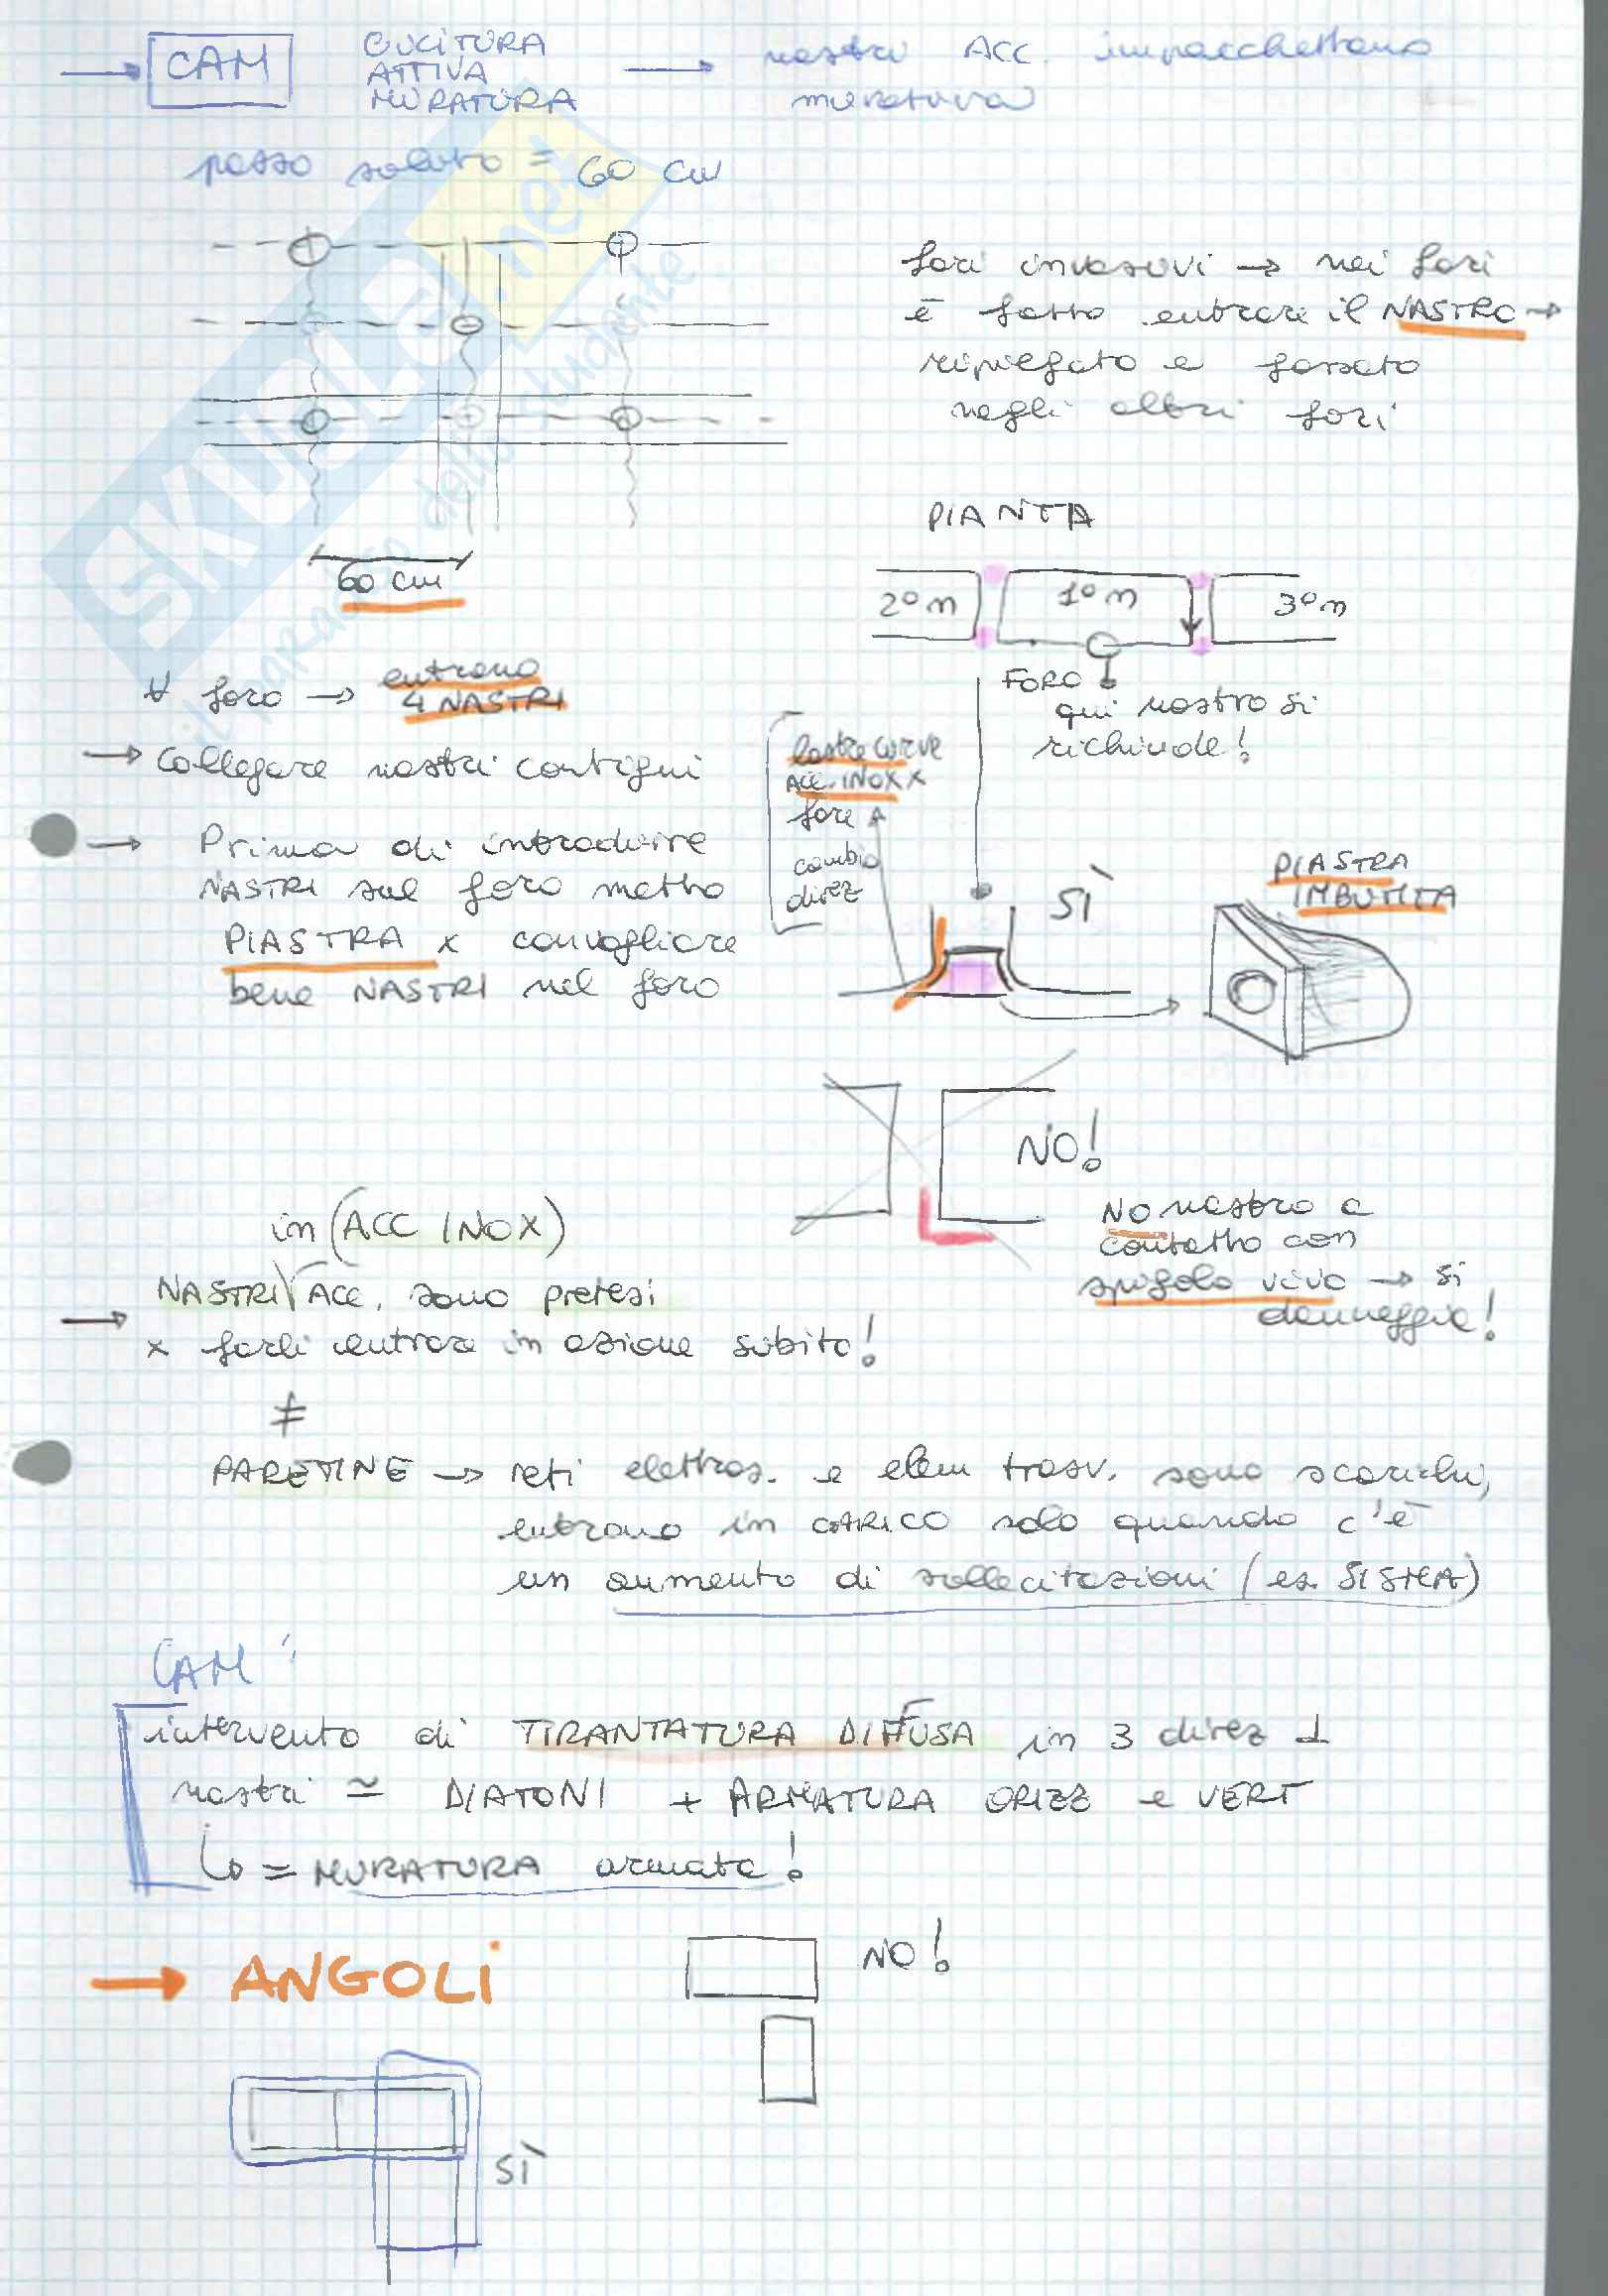 → CAM CUCITURA
ATTIVA
MURATURA
→ nastri ACC. impacchettano
muratura
passo solito = 60 cm
fori invasivi → nei fori
è fatto entrare il NASTRO →
ripiegato e passato
negli altri fori
60 cm
PIANTA
2° n 1° n 3° n
FORO
qui nastro si
richiude!
∀ foro → entrano
4 NASTRI
→ Collegare nastri contigui
→ Prima di introdurre
NASTRI sul foro metto
PIASTRA x convogliare
bene NASTRI nel foro
lastre curve
ACC. INOX x
fare
cambio
direz
SÌ
PIASTRA
IMBUTITA
NO!
NO nastro a
contatto con
spigolo vivo → si
danneggia!
in (ACC INOX)
→ NASTRI ACC. sono pretesi
x farli entrare in azione subito!
≠
PARETINE → reti elettros. e elem trasv. sono scarichi,
entrano in CARICO solo quando c'è
un aumento di sollecitazioni (es. SISMA)
CAM:
intervento di TIRANTATURA DIFFUSA in 3 direz ⊥
nastri ≃ DIATONI + ARMATURA ORIZZ e VERT
↳ = MURATURA armata!
→ ANGOLI
NO!
SÌ
SKUOLA.net
il paradiso dello studente